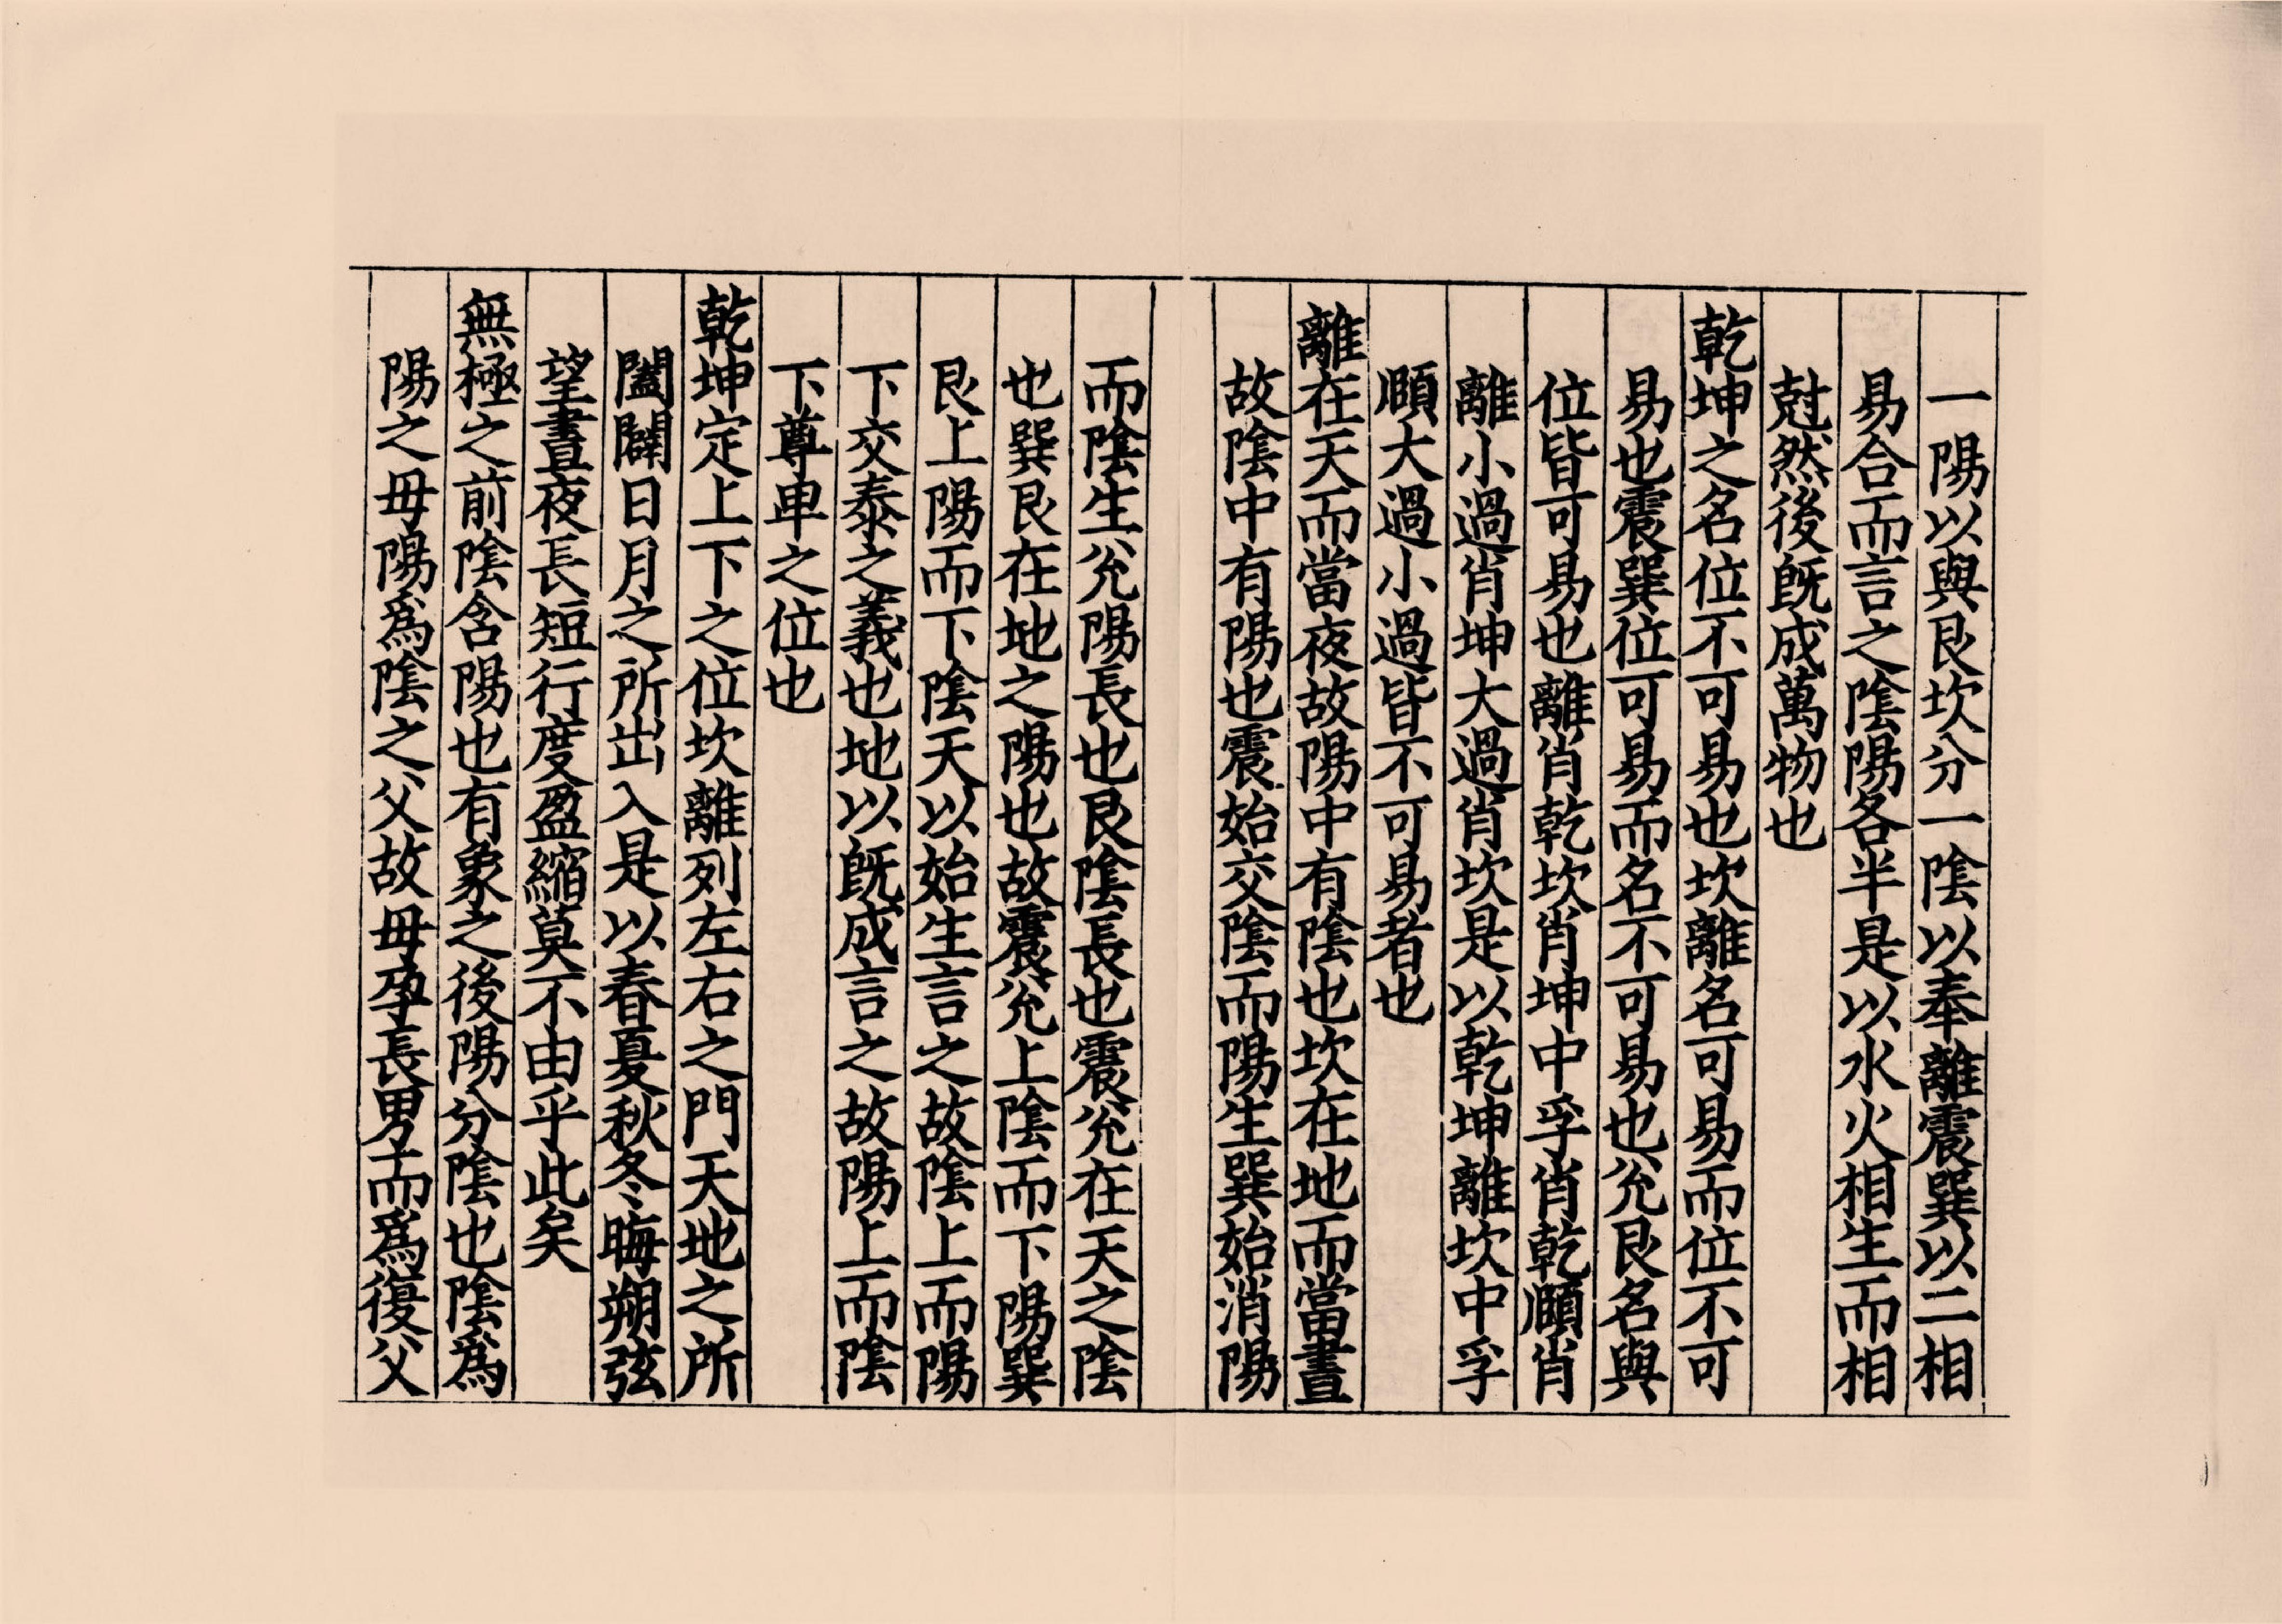 一陽以與艮坎分一陰以奉離震巽以二相
易合而言之陰陽各半是以水火相生而相
尅然後旣成萬物也
乾坤之名位不可易也坎離名可易而位不可
易也震巽位可易而名不可易也兊艮名與
位皆可易也離肖乾坎肖坤中孚肖乾頤肖
離小過肖坤大過肖坎是以乾坤離坎中孚
頤大過小過皆不可易者也
離在天而當夜故陽中有陰也坎在地而當晝
故陰中有陽也震始交陰而陽生巽始消陽
而陰生兊陽長也艮陰長也震兊在天之陰
也巽艮在地之陽也故震兊上陰而下陽巽
艮上陽而下陰天以始生言之故陰上而陽
下交泰之義也地以旣成言之故陽上而陰
下尊卑之位也
乾坤定上下之位坎離列左右之門天地之所
闔闢日月之所出入是以春夏秋冬晦朔弦
望晝夜長短行度盈縮莫不由乎此矣
無極之前陰含陽也有象之後陽分陰也陰爲
陽之母陽爲陰之父故母孕長男而爲復父